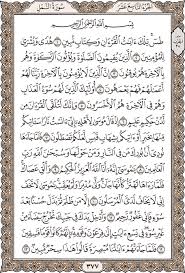 الجزء التاسع عشر
سورة النمل
بِسْمِ ٱللَّهِ ٱلرَّحْمَٰنِ ٱلرَّحِيمِ
طسٓ تِلْكَ ءَايَٰتُ ٱلْقُرْءَانِ وَكِتَابٍ مُّبِينٍ ١ هُدًى وَبُشْرَىٰ
لِلْمُؤْمِنِينَ ٢ ٱلَّذِينَ يُقِيمُونَ ٱلصَّلَوٰةَ وَيُؤْتُونَ ٱلزَّكَوٰةَ وَهُم
بِٱلْءَاخِرَةِ هُمْ يُوقِنُونَ ٣ إِنَّ ٱلَّذِينَ لَا يُؤْمِنُونَ بِٱلْءَاخِرَةِ زَيَّنَّا لَهُمْ
أَعْمَٰلَهُمْ فَهُمْ يَعْمَهُونَ ٤ أُو۟لَٰٓئِكَ ٱلَّذِينَ لَهُمْ سُوٓءُ ٱلْعَذَابِ
وَهُمْ فِى ٱلْءَاخِرَةِ هُمُ ٱلْأَخْسَرُونَ ٥ وَإِنَّكَ لَتُلَقَّى ٱلْقُرْءَانَ
مِن لَّدُنْ حَكِيمٍ عَلِيمٍ ٦ إِذْ قَالَ مُوسَىٰ لِأَهْلِهِۦٓ إِنِّىٓ ءَانَسْتُ نَارًا
سَـَٔاتِيكُم مِّنْهَا بِخَبَرٍ أَوْ ءَاتِيكُم بِشِهَابٍ قَبَسٍ لَّعَلَّكُمْ تَصْطَلُونَ
٧ فَلَمَّا جَآءَهَا نُودِىَ أَنۢ بُورِكَ مَن فِى ٱلنَّارِ وَمَنْ حَوْلَهَا وَسُبْحَٰنَ ٱللَّهِ
رَبِّ ٱلْعَٰلَمِينَ ٨ يَٰمُوسَىٰٓ إِنَّهُۥٓ أَنَا ٱللَّهُ ٱلْعَزِيزُ ٱلْحَكِيمُ ٩ وَأَلْقِ عَصَاكَ
فَلَمَّا رَءَاهَا تَهْتَزُّ كَأَنَّهَا جَآنٌّ وَلَّىٰ مُدْبِرًا وَلَمْ يُعَقِّبْ يَٰمُوسَىٰ لَا تَخَفْ
إِنِّى لَا يَخَافُ لَدَىَّ ٱلْمُرْسَلُونَ ١٠ إِلَّا مَن ظَلَمَ ثُمَّ بَدَّلَ حُسْنًۢا بَعْدَ
سُوٓءٍ فَإِنِّى غَفُورٌ رَّحِيمٌ ١١ وَأَدْخِلْ يَدَكَ فِى جَيْبِكَ تَخْرُجْ بَيْضَآءَ مِنْ غَيْرِ
سُوٓءٍ فِى تِسْعِ ءَايَٰتٍ إِلَىٰ فِرْعَوْنَ وَقَوْمِهِۦٓ إِنَّهُمْ كَانُوا۟ قَوْمًا فَٰسِقِينَ ١٢
فَلَمَّا جَآءَتْهُمْ ءَايَٰتُنَا مُبْصِرَةً قَالُوا۟ هَٰذَا سِحْرٌ مُّبِينٌ ١٣
٣٧٧